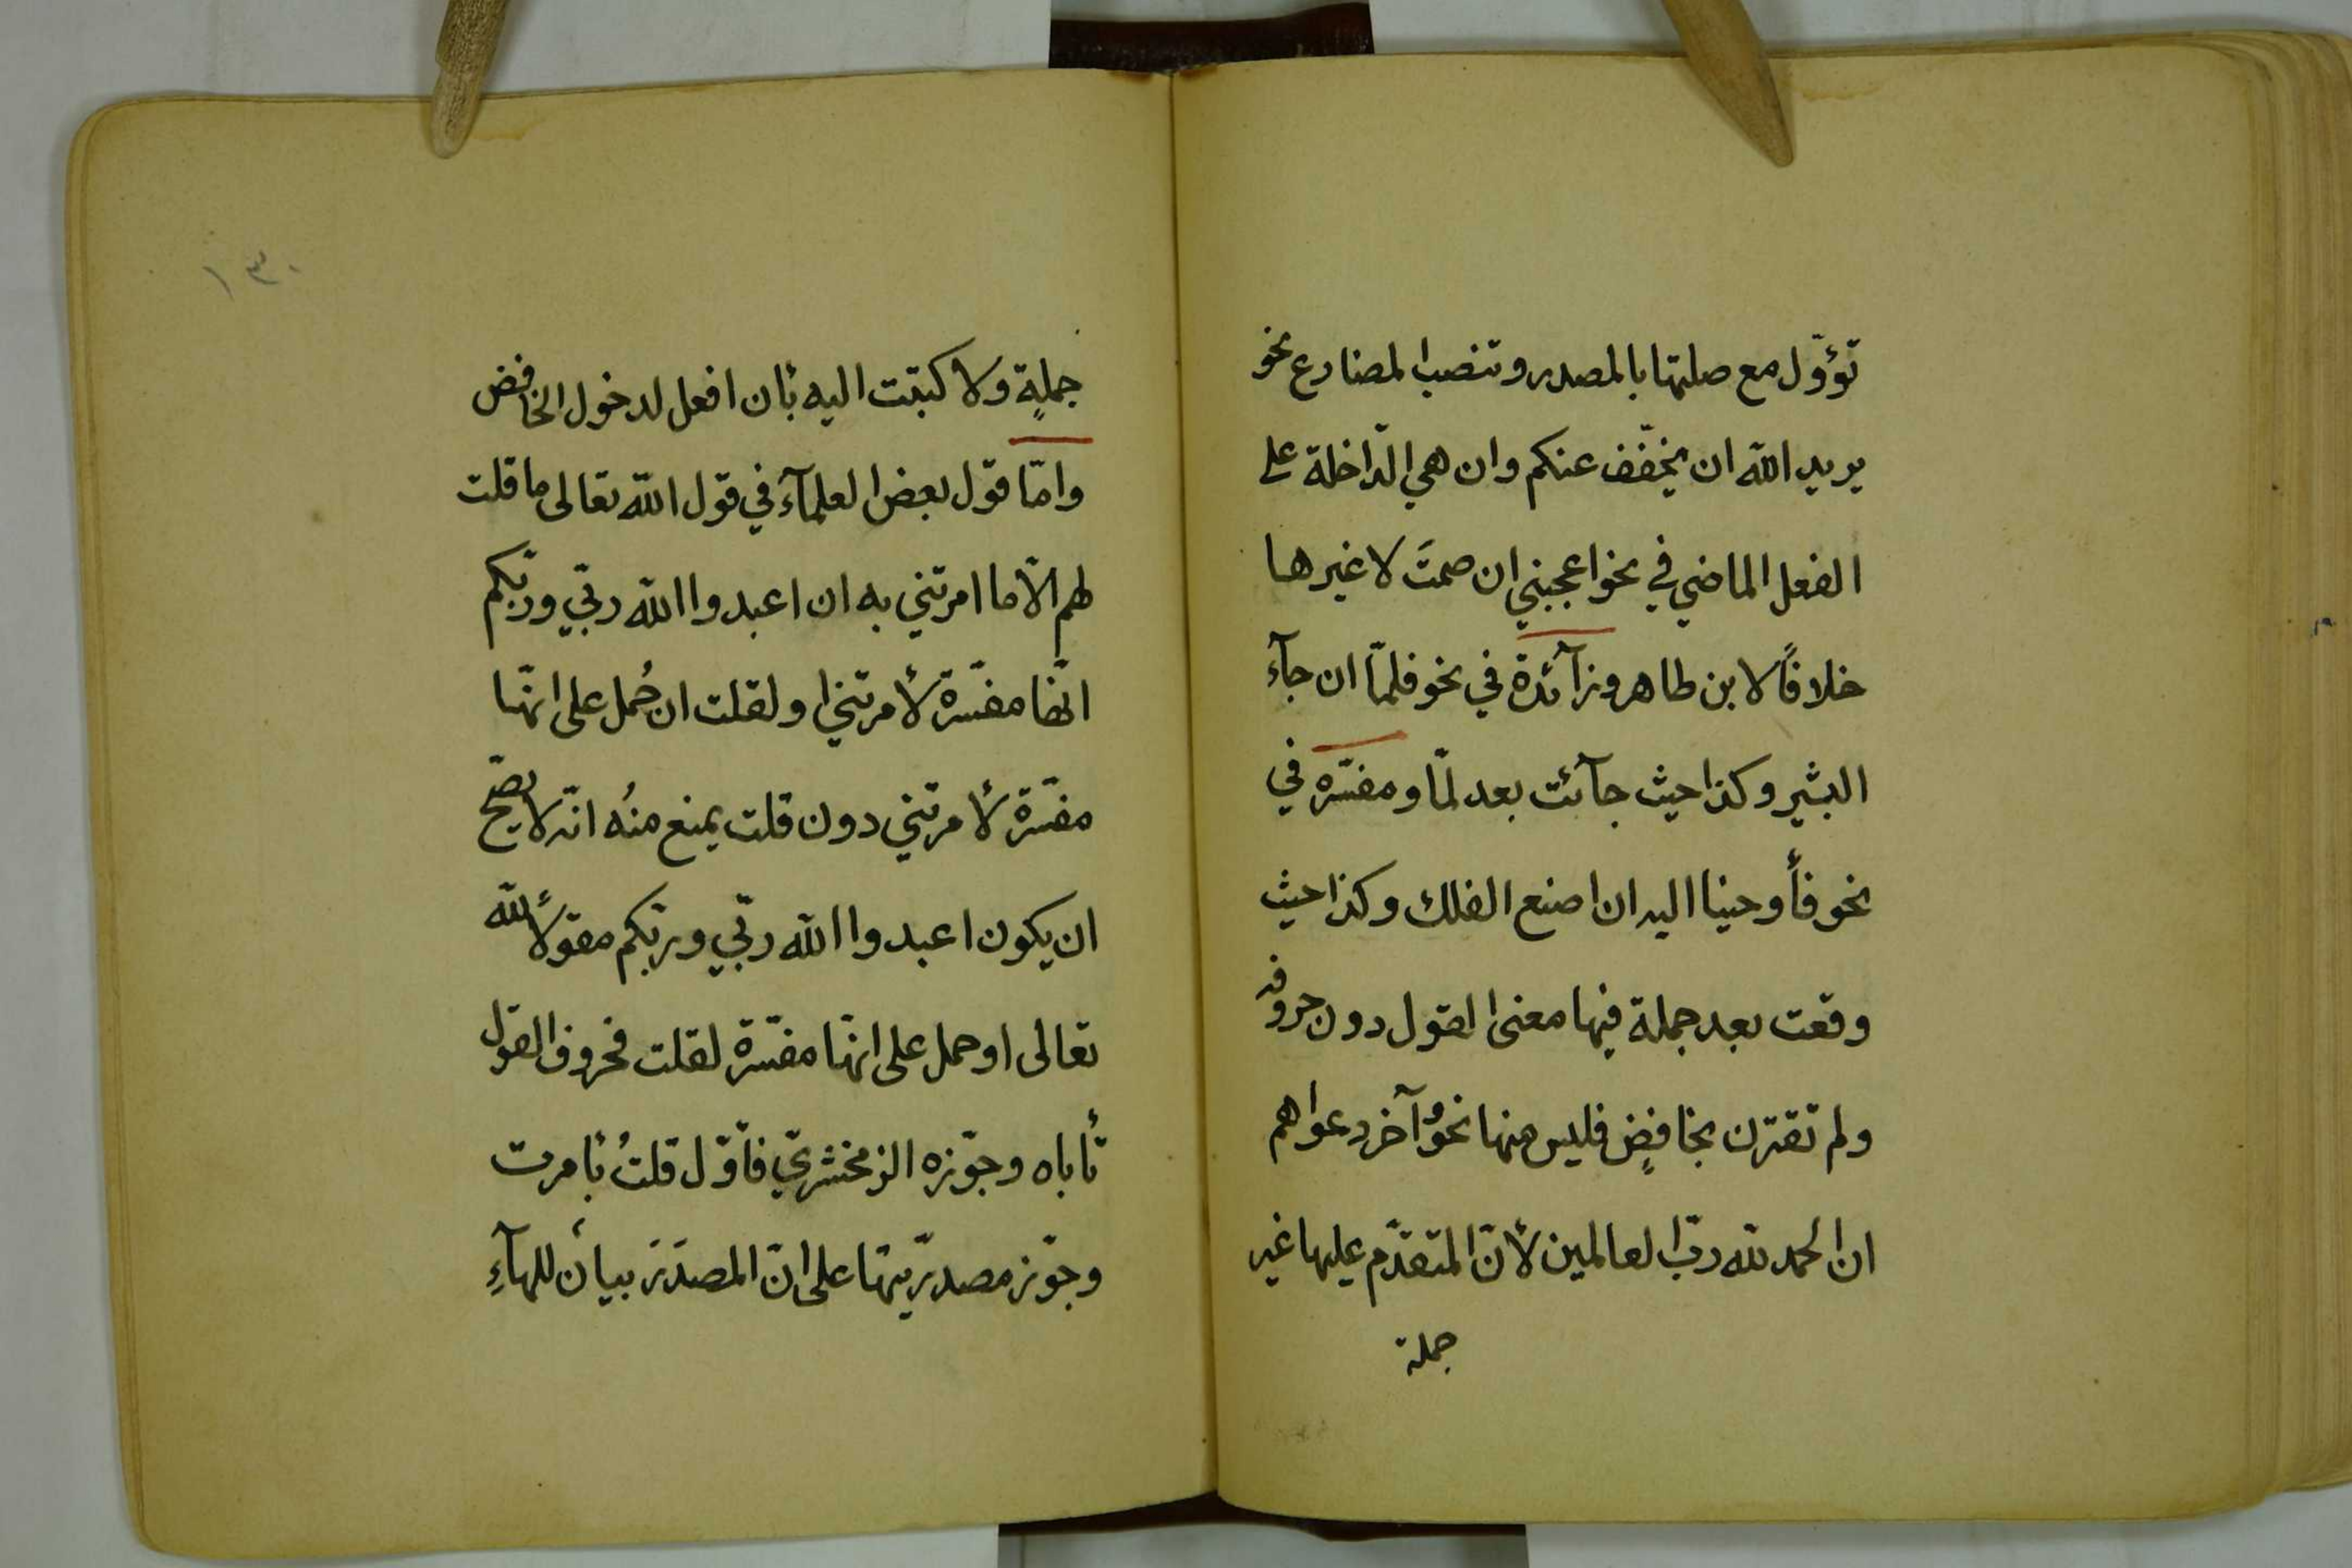 تؤوّل مع صلتها بالمصدر وتنصب المضارع نحو
يريد الله ان يخفّف عنكم وان هي الدّاخلة على
الفعل الماضي في نحو اعجبني ان صمتَ لا غيرها
خلافًا لابن طاهر وزآئدة في نحو فلمّا ان جآء
البشير وكذا حيث جآئت بعد لمّا ومفسّره في
نحو فأوحينا اليه ان اصنع الفلك وكذا حيث
وقعت بعد جملة فيها معنى القول دون حروفه
ولم تقترن بخافضٍ فليس منها نحوُ وآخر دعواهم
ان الحمد لله ربّ العالمين لأنّ المتقدّم عليها غير
جملة
١٣٠
جملةٍ ولا كتبت اليه بأن افعل لدخول الخافض
وامّا قول بعض العلمآء في قول الله تعالى ما قلت
لهم الّا ما امرتني به ان اعبدوا الله ربّي وربّكم
انّها مفسّرة لأمرتني او لقلت ان حُمل على انّها
مفسّرة لأمرتني دون قلت يمنع منه انّه لا يصّح
ان يكون اعبدوا الله ربّي وربّكم مقولًا لله
تعالى او حمل على انّها مفسّرة لقلت فحروف القول
تأباه وجوّزه الزمخشريّ فأوّل قلتُ بأمرت
وجوّز مصدريّتها على انّ المصدَر بيان للهآءِ